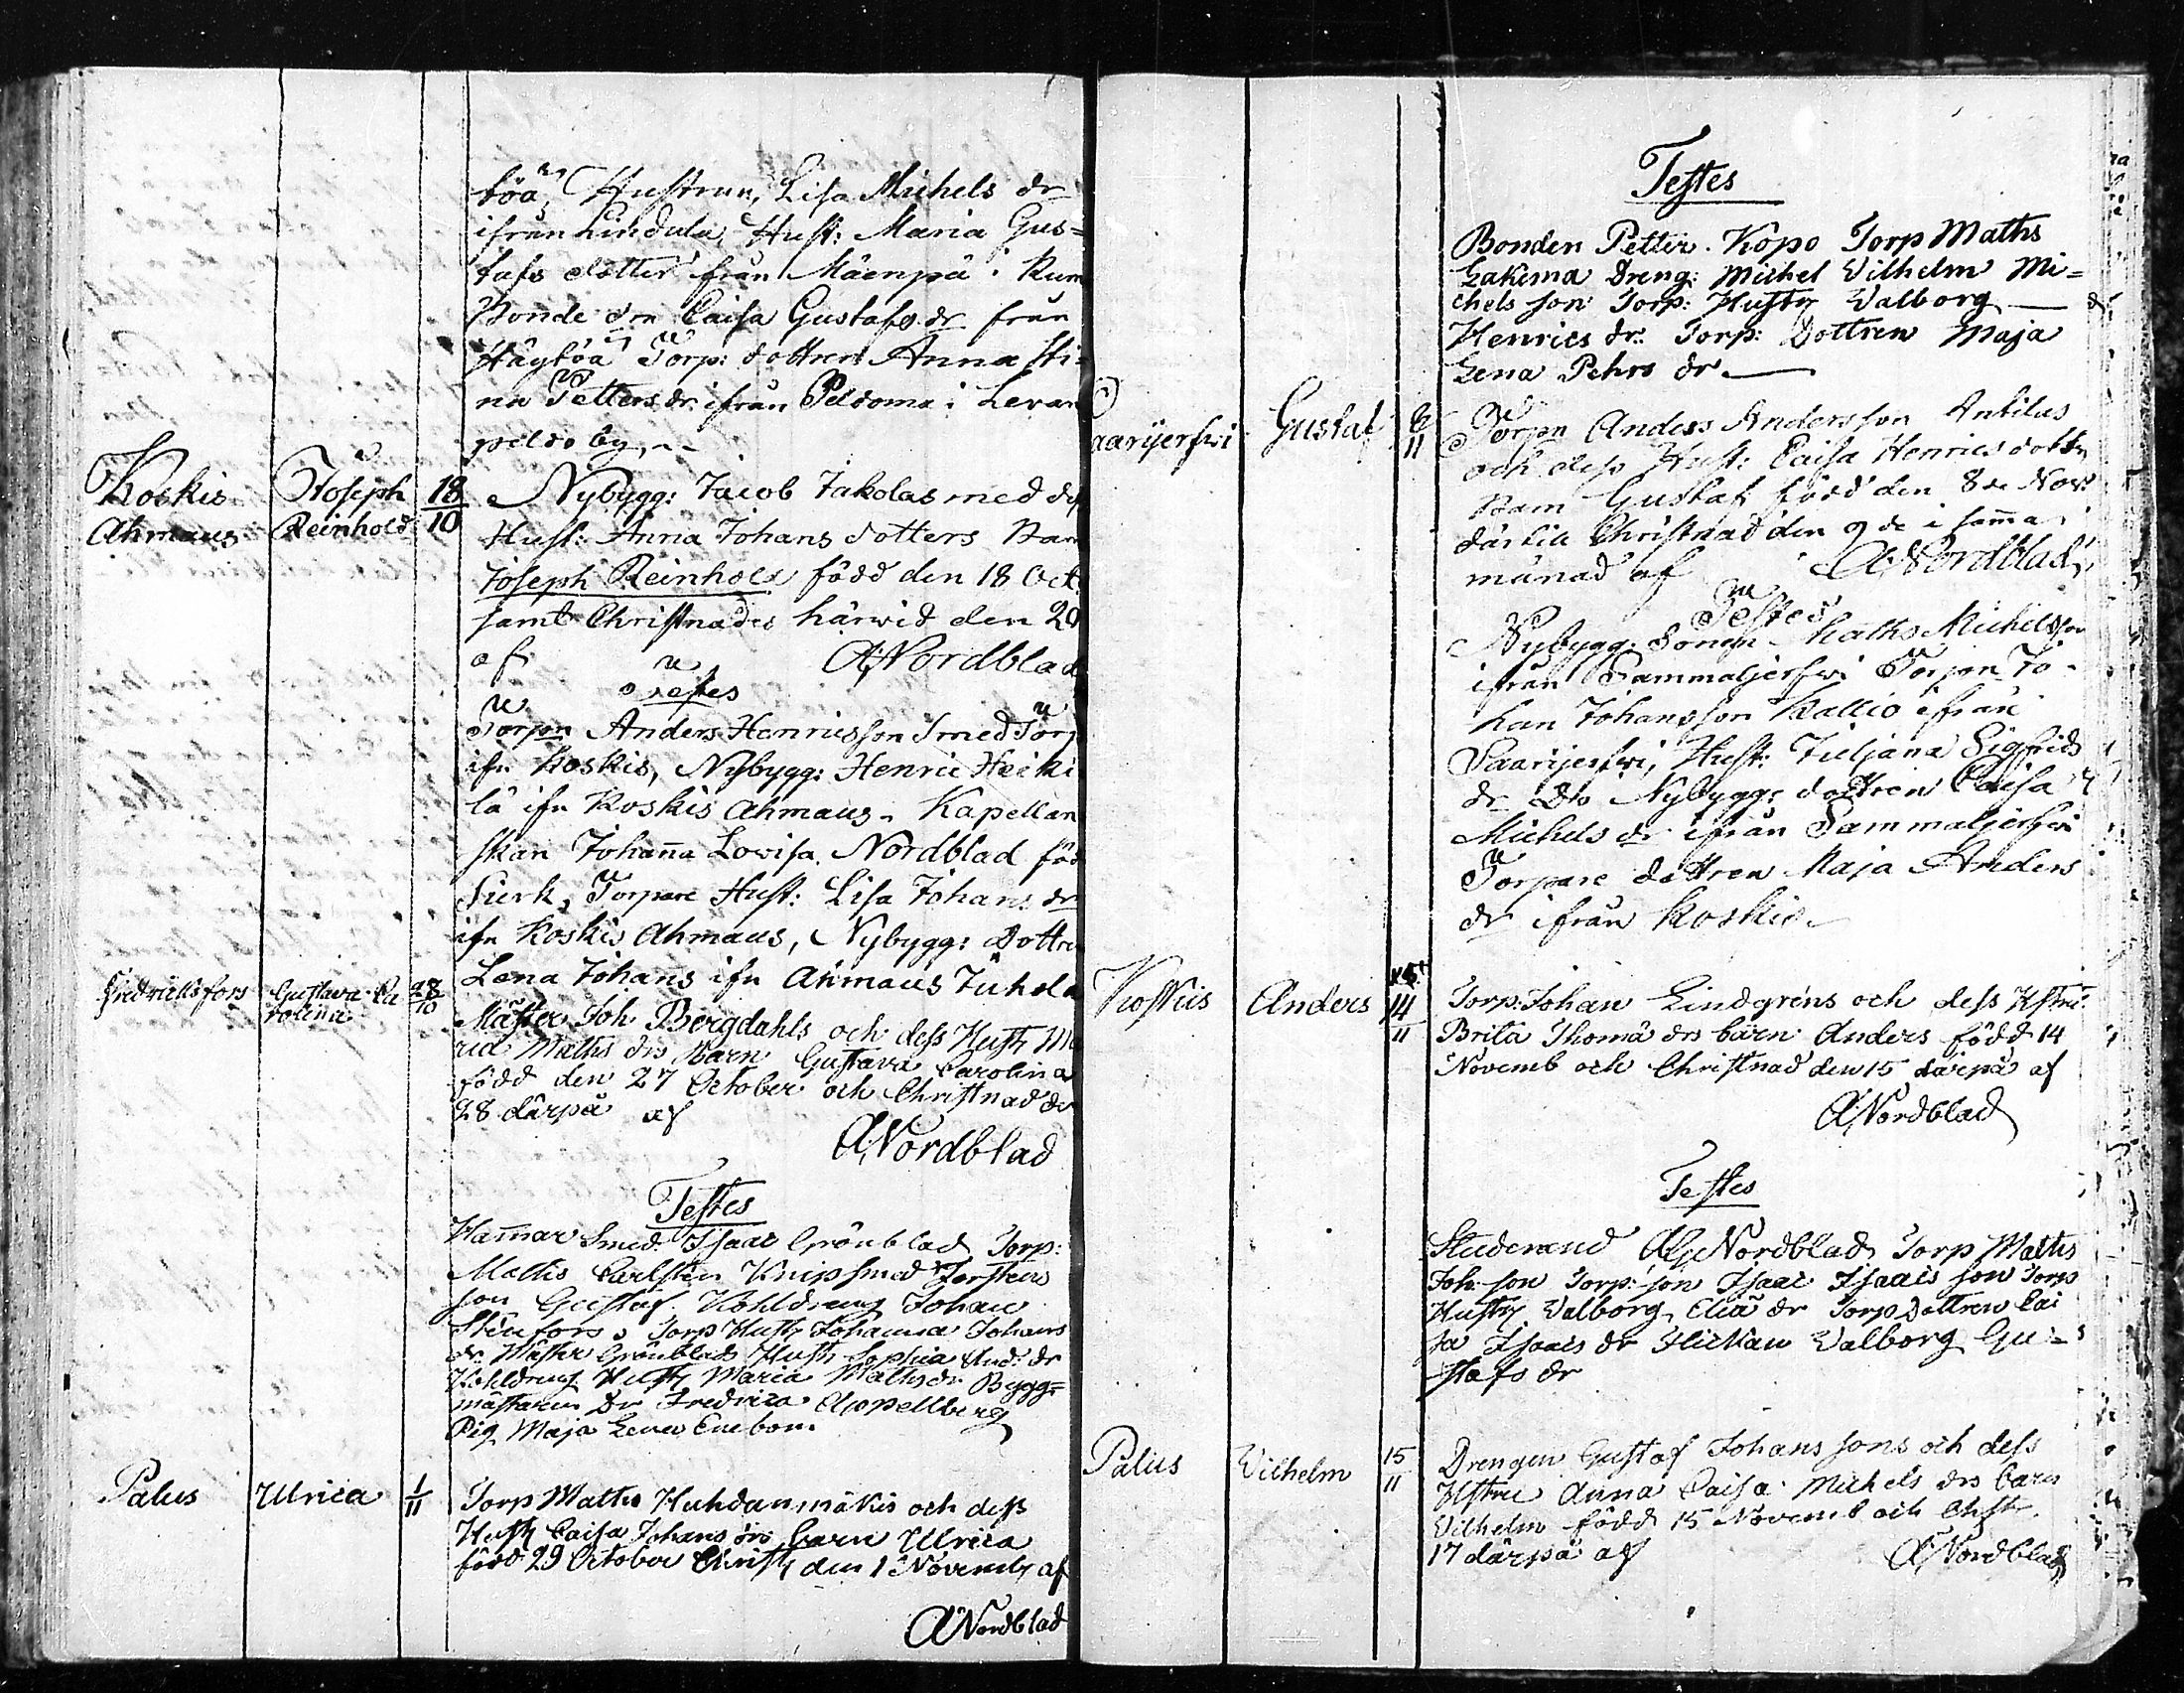 Hustrun, Lisa Michels dr
ifrån Lindula, Hust: Maria Gus=
tafs dotter från Mäenpä i Kum
Bonde drn Caisa Gustafs dr från
Torp: dottren Anna Sti=
na Petters dr. ifrån Peldoma i Levan
peldo by
Koskis
Ahmaus
Joseph
Reinhold
18
10
Nybygg: Jacob Jakolas med dess
Hust: Anna Johans dotters Barn
Joseph Reinhold född den 18 Oct
samt Christnades härwid den 20
af
A Nordblad
Testes
Torpn Anders Henricsson Smed Torp
ifn Koskis, Nybygg: Henric Heiki
lä ifn Koskis Ahmaus. Kapellan
skan Johanna Lovisa Nordblad föd
Torpare Hust: Lisa Johans dr
ifn Koskis Ahmaus, Nybygg: Dottren
Lena Johans ifn Ahmaus Juhola
Fredricksfors
Gustava Ca
rolina
28
10
Mäster Joh. Bergdahls och dess Hust Ma
ria Maths drs Barn Gustava Carolina
född den 27 October och Christnad den
28 därpå af
A Nordblad
Testes
Hammar Smed. Isaac Grönblad Torp:
Mattis Carlsten Knipsmed Torsten
son Gustaf. Kohldreng Johan
Stenfors. Torp Hust Johanna Johans
dr. Mäster Grönblads Hust Sophia And: dr
Kohldreng Hust Maria Maths dr. Bygg=
mästaren Dr Fredrica Appellberg
Pig Maja Lena Enebom
Palus
Ulrica
1
11
Torp Maths Huhdanmäkis och dess
Hust Caisa Johans drs barn Ulrica
född 29 October Christ den 1 Novemb af
A Nordblad
Testes
Bonden Petter Kopo Torp Maths
Lakema Dreng: Michel Vilhelm Mi=
chels son Torp: Hust Valborg
Henrics dr. Torp: Dottren Maja
Lena Pehrs dr
aarijerfwi
Gustaf
8
11
Torpn Anders Andersson Antilas
och dess Hust: Caisa Henrics dotters
Barn Gustaf född den 8de Nov:
därtill Christnad den 9de i samma
månad af
A Nordblad
Testes
Nybygg: Sonen Maths Michelsson
ifrån Sammaljerfwi Torpn Jo=
han Johansson Kallio ifrån
Saarijerfwi, Hust: Juljana Sigfrids
dr Do Nybygg: dottren Caisa
Michels dr ifrån Sammaljerfwi
Torpare dottren Maja Anders
dr ifrån Koskis
Koskis
Anders
14
11
Torp: Johan Lindgrens och dess Hstru
Brita Thomä drs barn Anders född 14
Novemb och Christnad den 15 därpå af
A Nordblad
Testes
Studerand A G Nordblad Torp Maths
Joh: son Torp: son Isaac Isaacs son Torp
Hust Valborg Eliä dr Torp Dottren Cai
sa Isaacs dr Flickan Valborg Gu=
stafs dr
Palus
Vilhelm
15
11
Drengen Gustaf Johans sons och dess
Hstru Anna Caisa Michels drs barn
Vilhelm född 15 Novemb och Christ
17 därpå af
A Nordblad